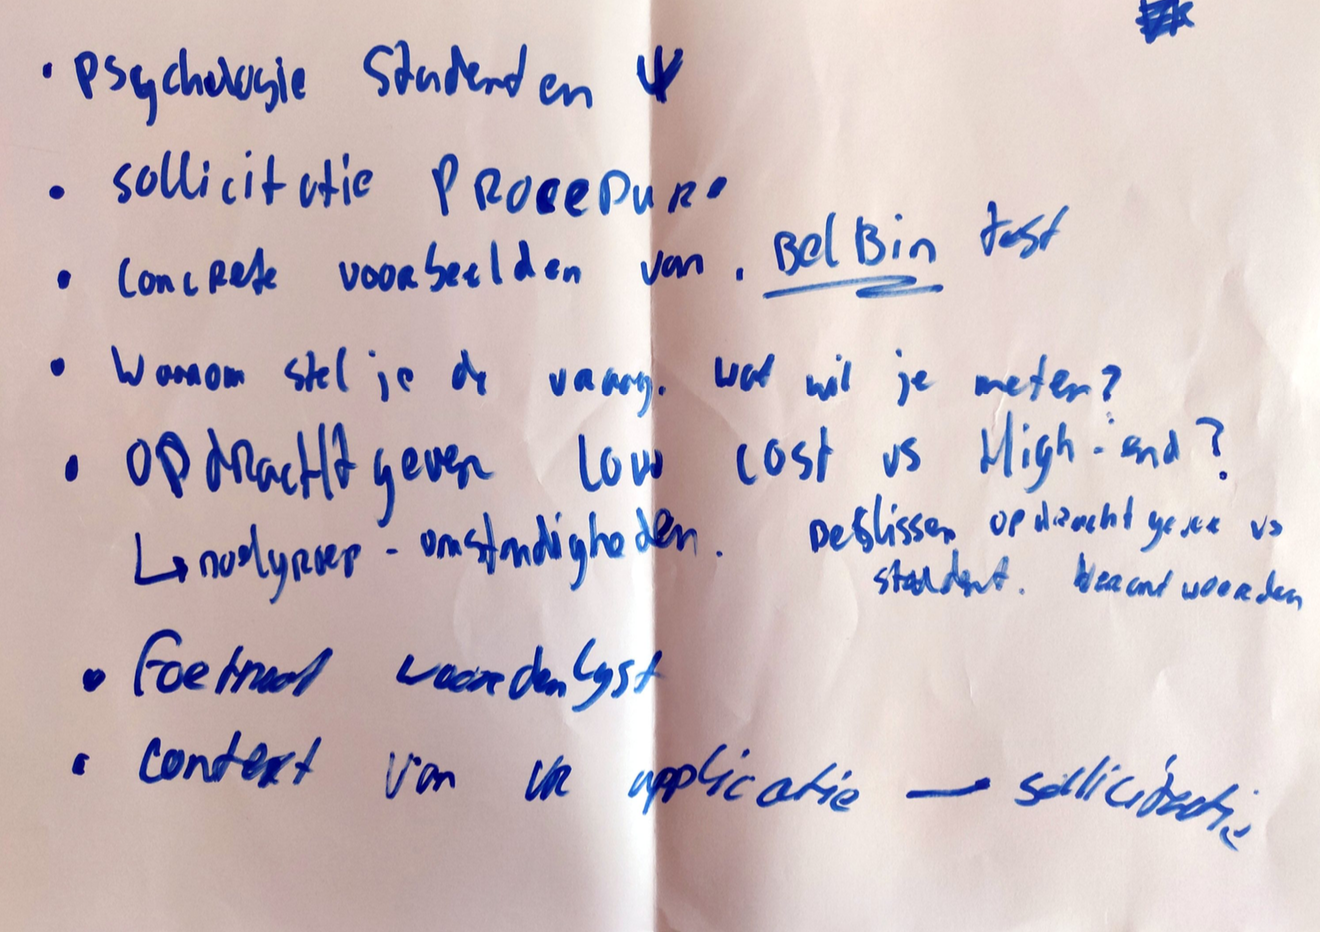 • Psychologie Studenten ψ
• sollicitatie PROCEDURE
• Concrete voorbeelden van . BelBin test
• Waarom stel je de vraag. wat wil je meten?
• OPdRachtgever low cost vs High-end?
↳ analyseer - omstandigheden.
Beslissen opdrachtgever vs
student. Verantwoorden
• Formaat woordenlijst
• Context van VR applicatie — sollicitatie